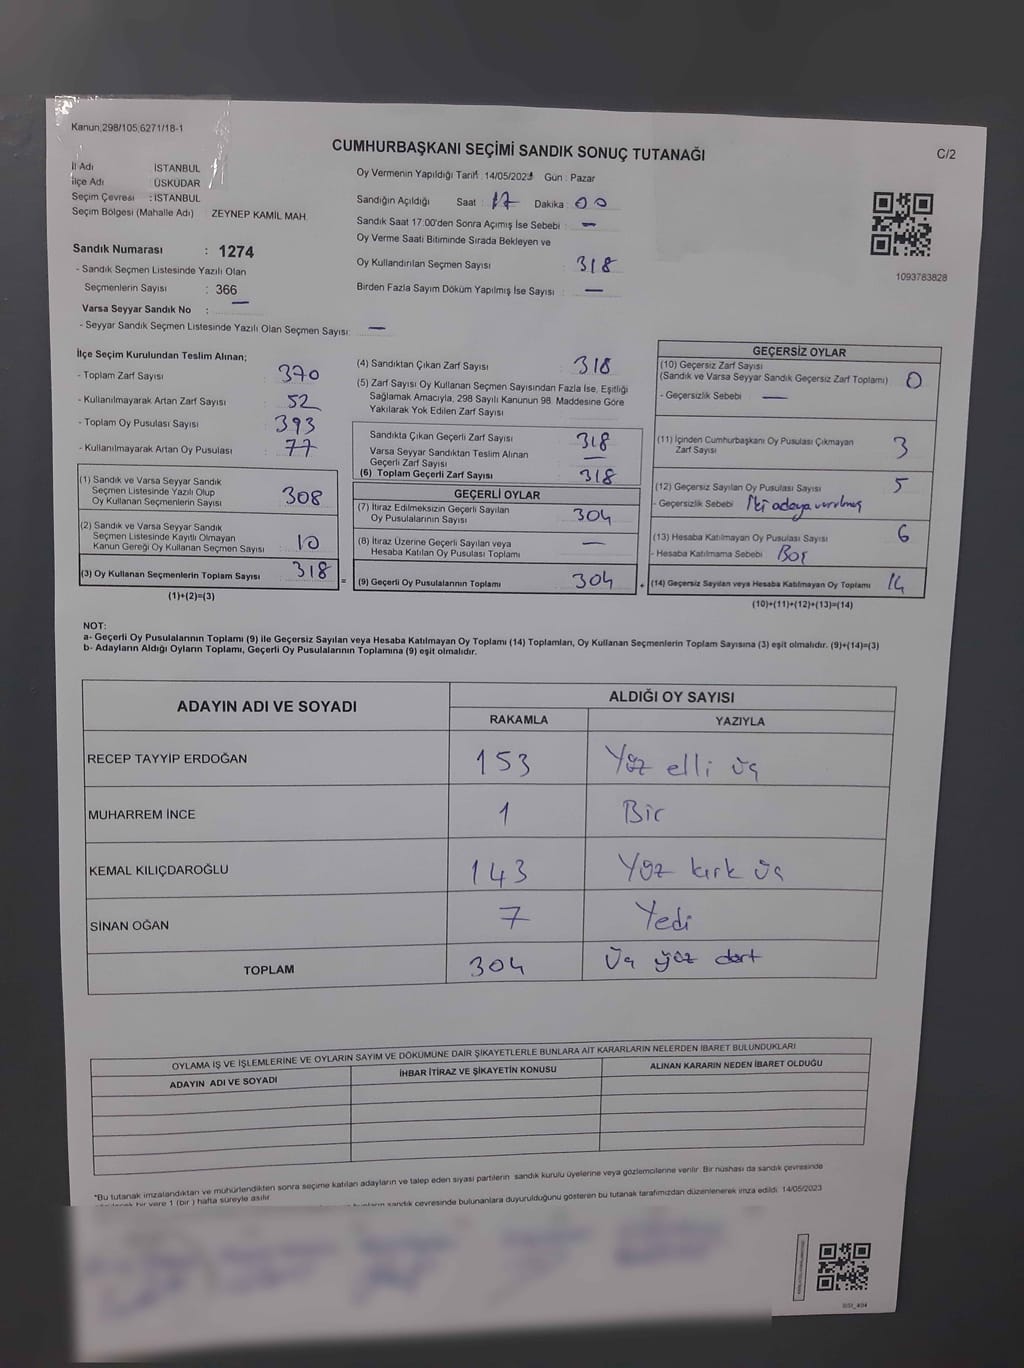 Kanun;298/105,6271/18-1
CUMHURBAŞKANI SEÇİMİ SANDIK SONUÇ TUTANAĞI
C/2
İl Adı İSTANBUL
İlçe Adı ÜSKÜDAR
Seçim Çevresi : İSTANBUL
Seçim Bölgesi (Mahalle Adı) ZEYNEP KAMİL MAH.
Sandık Numarası : 1274
- Sandık Seçmen Listesinde Yazılı Olan
Seçmenlerin Sayısı : 366
Varsa Seyyar Sandık No : —
- Seyyar Sandık Seçmen Listesinde Yazılı Olan Seçmen Sayısı: —
Oy Vermenin Yapıldığı Tarih: 14/05/2023 Gün : Pazar
Sandığın Açıldığı Saat : 17 Dakika : 00
Sandık Saat 17:00'den Sonra Açımış İse Sebebi : —
Oy Verme Saati Bitiminde Sırada Bekleyen ve
Oy Kullandırılan Seçmen Sayısı : 318
Birden Fazla Sayım Döküm Yapılmış İse Sayısı : —
1093783828
İlçe Seçim Kurulundan Teslim Alınan;
- Toplam Zarf Sayısı : 370
- Kullanılmayarak Artan Zarf Sayısı : 52
- Toplam Oy Pusulası Sayısı : 393
- Kullanılmayarak Artan Oy Pusulası : 77
(1) Sandık ve Varsa Seyyar Sandık
Seçmen Listesinde Yazılı Olup
Oy Kullanan Seçmenlerin Sayısı 308
(2) Sandık ve Varsa Seyyar Sandık
Seçmen Listesinde Kayıtlı Olmayan
Kanun Gereği Oy Kullanan Seçmen Sayısı : 10
(3) Oy Kullanan Seçmenlerin Toplam Sayısı 318
(1)+(2)=(3)
(4) Sandıktan Çıkan Zarf Sayısı : 318
(5) Zarf Sayısı Oy Kullanan Seçmen Sayısından Fazla İse, Eşitliği
Sağlamak Amacıyla, 298 Sayılı Kanunun 98. Maddesine Göre
Yakılarak Yok Edilen Zarf Sayısı
Sandıkta Çıkan Geçerli Zarf Sayısı 318
Varsa Seyyar Sandıktan Teslim Alınan
Geçerli Zarf Sayısı —
(6) Toplam Geçerli Zarf Sayısı 318
GEÇERLİ OYLAR
(7) İtiraz Edilmeksizin Geçerli Sayılan
Oy Pusulalarının Sayısı 304
(8) İtiraz Üzerine Geçerli Sayılan veya
Hesaba Katılan Oy Pusulası Toplamı —
= (9) Geçerli Oy Pusulalarının Toplamı 304
GEÇERSİZ OYLAR
(10) Geçersiz Zarf Sayısı
(Sandık ve Varsa Seyyar Sandık Geçersiz Zarf Toplamı) 0
- Geçersizlik Sebebi : —
(11) İçinden Cumhurbaşkanı Oy Pusulası Çıkmayan
Zarf Sayısı 3
(12) Geçersiz Sayılan Oy Pusulası Sayısı 5
- Geçersizlik Sebebi İki adaya vurulmuş
(13) Hesaba Katılmayan Oy Pusulası Sayısı 6
- Hesaba Katılmama Sebebi Boş
+ (14) Geçersiz Sayılan veya Hesaba Katılmayan Oy Toplamı 14
(10)+(11)+(12)+(13)=(14)
NOT:
a- Geçerli Oy Pusulalarının Toplamı (9) ile Geçersiz Sayılan veya Hesaba Katılmayan Oy Toplamı (14) Toplamları, Oy Kullanan Seçmenlerin Toplam Sayısına (3) eşit olmalıdır. (9)+(14)=(3)
b- Adayların Aldığı Oyların Toplamı, Geçerli Oy Pusulalarının Toplamına (9) eşit olmalıdır.
ADAYIN ADI VE SOYADI
ALDIĞI OY SAYISI
RAKAMLA YAZIYLA
RECEP TAYYİP ERDOĞAN 153 Yüz elli üç
MUHARREM İNCE 1 Bir
KEMAL KILIÇDAROĞLU 143 Yüz kırk üç
SİNAN OĞAN 7 Yedi
TOPLAM 304 Üç yüz dört
OYLAMA İŞ VE İŞLEMLERİNE VE OYLARIN SAYIM VE DÖKÜMÜNE DAİR ŞİKAYETLERLE BUNLARA AİT KARARLARIN NELERDEN İBARET BULUNDUKLARI
ADAYIN ADI VE SOYADI İHBAR İTİRAZ VE ŞİKAYETİN KONUSU ALINAN KARARIN NEDEN İBARET OLDUĞU
*Bu tutanak imzalandıktan ve mühürlendikten sonra seçime katılan adayların ve talep eden siyasi partilerin sandık kurulu üyelerine veya gözlemcilerine verilir. Bir nüshası da sandık çevresinde
bir yere 1 (bir) hafta süreyle asılır.
sandık çevresinde bulunanlara duyurulduğunu gösteren bu tutanak tarafımızdan düzenlenerek imza edildi. 14/05/2023